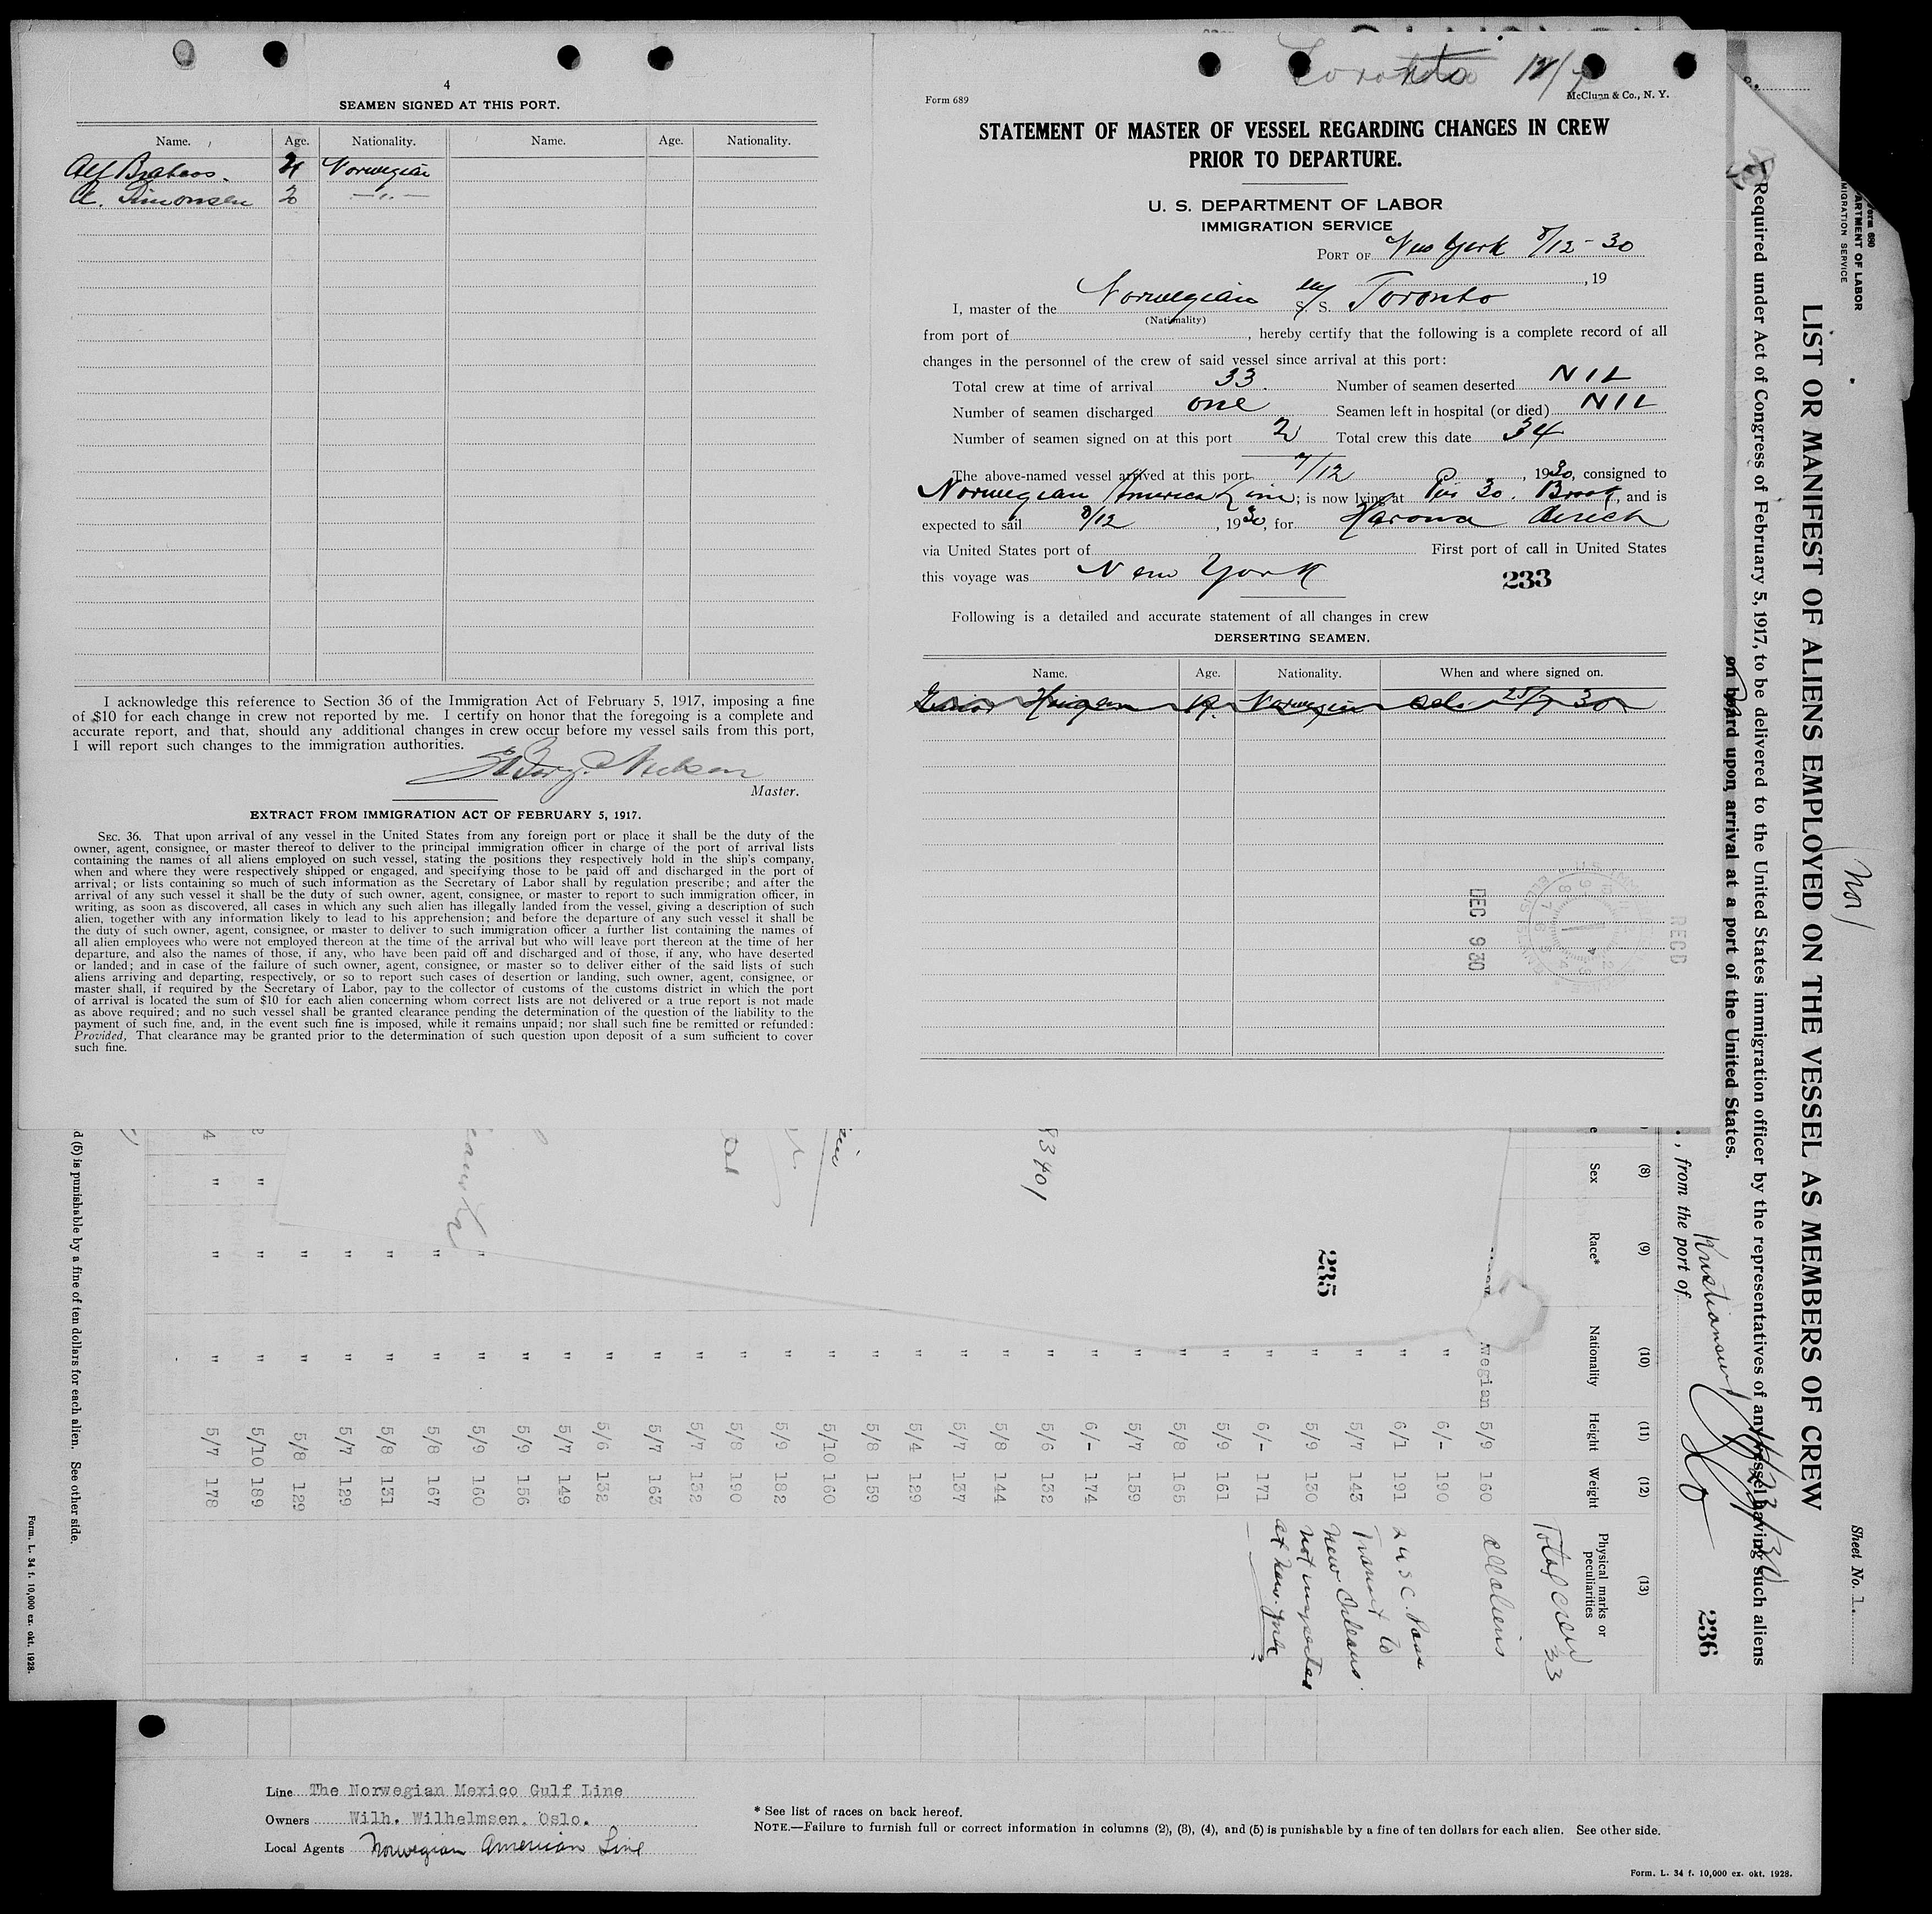 4
SEAMEN SIGNED AT THIS PORT.
Name. Age. Nationality. Name. Age. Nationality.
Alf 21 Norwegian
A. Simonsen 2 —"—
I acknowledge this reference to Section 36 of the Immigration Act of February 5, 1917, imposing a fine
of $10 for each change in crew not reported by me. I certify on honor that the foregoing is a complete and
accurate report, and that, should any additional changes in crew occur before my vessel sails from this port,
I will report such changes to the immigration authorities.
Nielsen
Master.
EXTRACT FROM IMMIGRATION ACT OF FEBRUARY 5, 1917.
SEC. 36. That upon arrival of any vessel in the United States from any foreign port or place it shall be the duty of the
owner, agent, consignee, or master thereof to deliver to the principal immigration officer in charge of the port of arrival lists
containing the names of all aliens employed on such vessel, stating the positions they respectively hold in the ship's company,
when and where they were respectively shipped or engaged, and specifying those to be paid off and discharged in the port of
arrival; or lists containing so much of such information as the Secretary of Labor shall by regulation prescribe; and after the
arrival of any such vessel it shall be the duty of such owner, agent, consignee, or master to report to such immigration officer, in
writing, as soon as discovered, all cases in which any such alien has illegally landed from the vessel, giving a description of such
alien, together with any information likely to lead to his apprehension; and before the departure of any such vessel it shall be
the duty of such owner, agent, consignee, or master to deliver to such immigration officer a further list containing the names of
all alien employees who were not employed thereon at the time of the arrival but who will leave port thereon at the time of her
departure, and also the names of those, if any, who have been paid off and discharged and of those, if any, who have deserted
or landed; and in case of the failure of such owner, agent, consignee, or master so to deliver either of the said lists of such
aliens arriving and departing, respectively, or so to report such cases of desertion or landing, such owner, agent, consignee, or
master shall, if required by the Secretary of Labor, pay to the collector of customs of the customs district in which the port
of arrival is located the sum of $10 for each alien concerning whom correct lists are not delivered or a true report is not made
as above required; and no such vessel shall be granted clearance pending the determination of the question of the liability to the
payment of such fine, and, in the event such fine is imposed, while it remains unpaid; nor shall such fine be remitted or refunded:
Provided, That clearance may be granted prior to the determination of such question upon deposit of a sum sufficient to cover
such fine.
Toronto 12/7
Form 689
McClunn & Co., N. Y.
STATEMENT OF MASTER OF VESSEL REGARDING CHANGES IN CREW
PRIOR TO DEPARTURE.
U. S. DEPARTMENT OF LABOR
IMMIGRATION SERVICE
PORT OF New York 8/12-30
, 19
I, master of the Norwegian m/ S. S. Toronto
(Nationality)
from port of , hereby certify that the following is a complete record of all
changes in the personnel of the crew of said vessel since arrival at this port:
Total crew at time of arrival 33. Number of seamen deserted NIL
Number of seamen discharged one Seamen left in hospital (or died) NIL
Number of seamen signed on at this port 2 Total crew this date 34
The above-named vessel arrived at this port 7/12, 1930, consigned to
Norwegian America Line; is now lying at Pier 30. Brook, and is
expected to sail 8/12, 1930, for Havana direct
via United States port of First port of call in United States
this voyage was New York
233
Following is a detailed and accurate statement of all changes in crew
DERSERTING SEAMEN.
Name. Age. Nationality. When and where signed on.
Haugen 19. Norwegian 30
DEC 9 30
RECD
Form 680
ARTMENT OF LABOR
MIGRATION SERVICE
Nor
Sheet No. 1.
LIST OR MANIFEST OF ALIENS EMPLOYED ON THE VESSEL AS MEMBERS OF CREW
Required under Act of Congress of February 5, 1917, to be delivered to the United States immigration officer by the representatives of any vessel having such aliens
on board upon arrival at a port of the United States.
236
, from the port of Kristiansund
(8) (9) (10) (11) (12) (13)
Sex Race* Nationality Height Weight Physical marks or
peculiarities
Total crew 33
wegian 5/9 160 all aliens
" 6/- 190
" 6/1 191 24 S C. Pass
" 5/7 143 Transit to
" 5/9 130 New Orleans
" 6/- 171 not inspected
at New York
" 5/9 161
" 5/8 165
" 5/7 159
" 6/- 174
" 5/6 132
" 5/8 144
" 5/7 137
" 5/4 129
" 5/8 159
" 5/10 160
" 5/9 182
" 5/8 190
" 5/7 132
" 5/7 163
" 5/6 132
" 5/7 149
" 5/9 156
" " 5/9 160
" " 5/8 167
" " 5/8 131
" " 5/7 129
" " 5/8 129
" " " 5/10 189
" " " 5/7 178
235
8340/
d (5) is punishable by a fine of ten dollars for each alien. See other side.
Form. L. 34 f. 10,000 ex. okt. 1928.
Line The Norwegian Mexico Gulf Line
Owners Wilh. Wilhelmsen. Oslo.
Local Agents Norwegian American Line
* See list of races on back hereof.
NOTE.—Failure to furnish full or correct information in columns (2), (3), (4), and (5) is punishable by a fine of ten dollars for each alien. See other side.
Form. L. 34 f. 10,000 ex. okt. 1928.